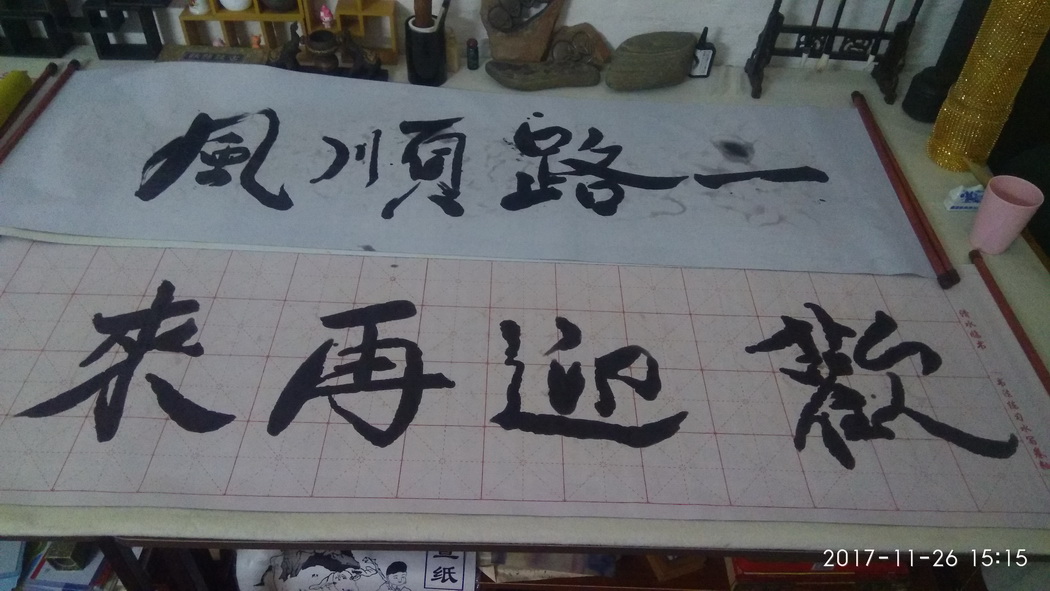 一路順風
歡迎再來
宣纸
2017-11-26 15:15